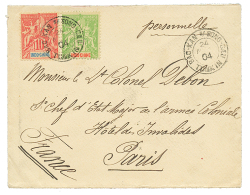 personnelle
TONKIN
04
Monsieur le Lt Colonel Debon
S/ Chef d'Etat Major de l'armée Coloniale
Hôtel des Invalides
Paris
France